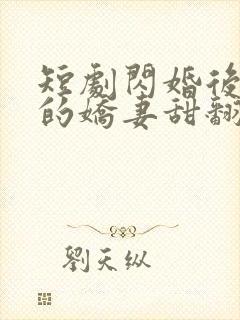 短劇閃婚後
的嬌妻甜翻
劉天纵